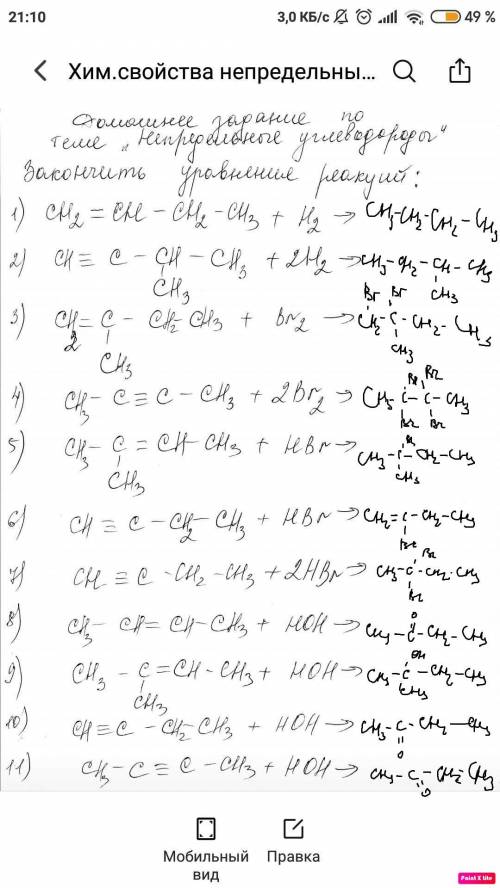 21:10 3,0 КБ/с 49 %
Хим.свойства непредельны...
Домашнее задание по
теме „Непредельные углеводороды"
Закончить уравнения реакций:
1) CH2 = CH - CH2 - CH3 + H2 → CH3-CH2-CH2-CH3
2) CH ≡ C - CH - CH3 + 2H2 → CH3-CH2-CH-CH3
CH3 CH3
Br Br
3) CH2 = C - CH2 CH3 + Br2 → CH2-C-CH2-CH3
CH3 CH3
Br Br
4) CH3 - C ≡ C - CH3 + 2Br2 → CH3 C - C - CH3
Br Br
5) CH3 - C = CH - CH3 + HBr → CH3-C-CH2-CH3
CH3 CH3
6) CH ≡ C - CH2 - CH3 + HBr → CH2=C-CH2-CH3
Br
Br
7) CH ≡ C - CH2 - CH3 + 2HBr → CH3-C-CH2-CH3
Br
O
8) CH3 - CH = CH - CH3 + HOH → CH3-C-CH2-CH3
OH
9) CH3 - C = CH - CH3 + HOH → CH3-C-CH2-CH3
CH3 CH3
10) CH ≡ C - CH2 CH3 + HOH → CH3-C-CH2-CH3
O
11) CH3 - C ≡ C - CH3 + HOH → CH3-C-CH2-CH3
O
Мобильный вид
Правка
Paint X lite